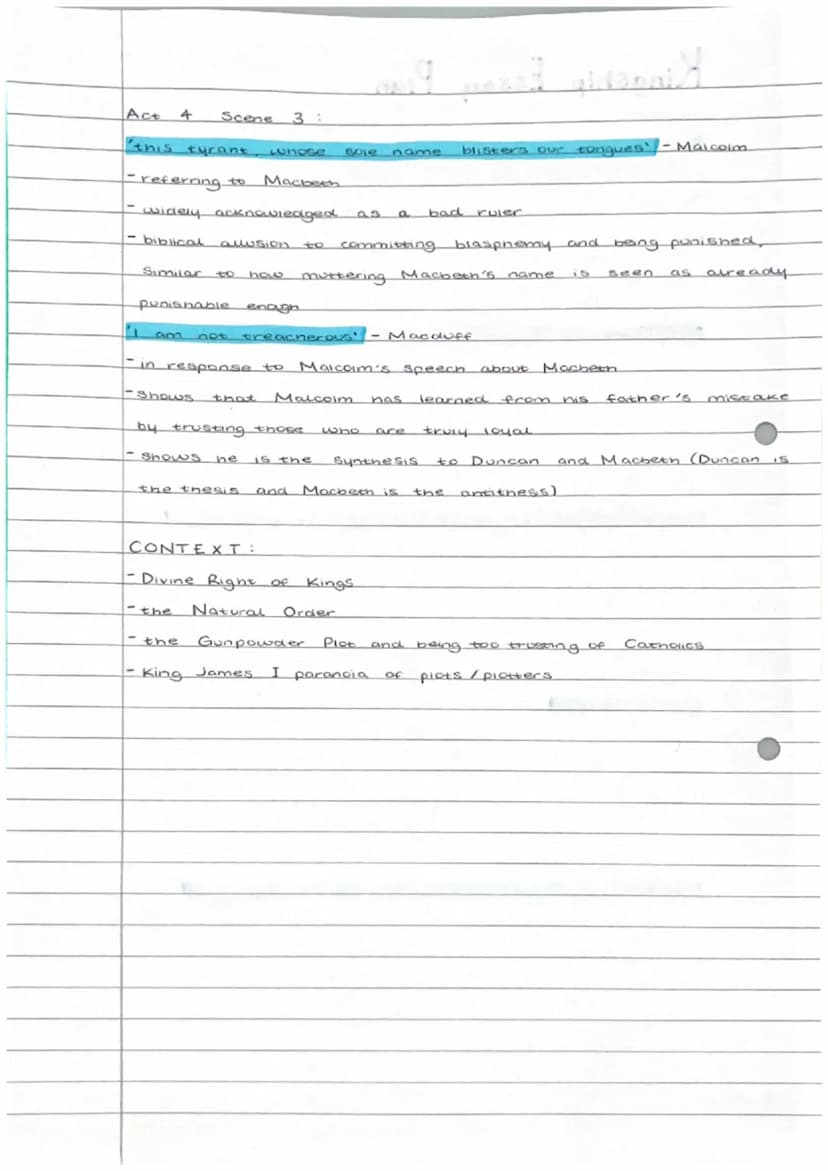 Act 4 Scene 3 :
'this tyrant, whose sole name blisters our tongues' - Malcolm
- referring to Macbeth
- widely acknowledged as a bad ruler
- biblical allusion to committing blasphemy and being punished,
similar to how muttering Macbeth's name is seen as already
punishable enogh
'I am not treacherous' - Macduff
- in response to Malcolm's speech about Macbeth
- shows that Malcolm has learned from his father's mistake
by trusting those who are truly loyal
- shows he is the synthesis to Duncan and Macbeth (Duncan is
the thesis and Macbeth is the antithess)
CONTEXT :
- Divine Right of Kings
- the Natural Order
- the Gunpowder Plot and being too trusting of Catholics
- King James I paranoia of plots / plotters